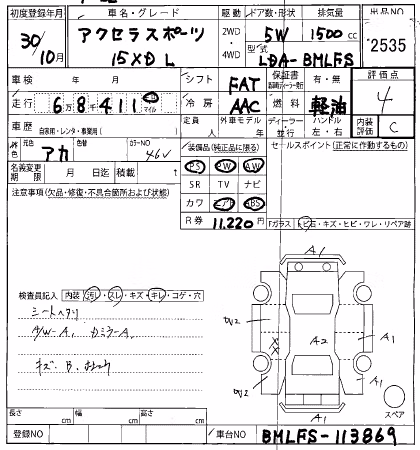 初度登録年月 車名・グレード 駆動 ドア数・形状 排気量 出品NO
30/10月 アクセラスポーツ 15XD L 2WD・4WD 5W 1500cc 2535
型式 LDA-BMLFS
車検 年 月 シフト FAT 保証書 有・無 評価点 4
走行 6万8千411 マイル 冷房 AAC 燃料 軽油
車歴 自家用・レンタ・事業用( 定員 人 外車モデル 年 ディーラー・並行 ハンドル 左・右 内装評価 C
元色 アカ 色替 カラーNO 46V
装備品(純正品に限る) セールスポイント(正常に作動するもの)
名義変更期限 月 日迄 積載 t
PS PW AW
SR TV ナビ
カワ エアB ABS
R券 11.220円
注意事項(欠品・修復・不具合箇所および状態)
Fガラス トビ石・キズ・ヒビ・ワレ・リペア跡
検査員記入 内装 汚レ・スレ・キズ・キレ・コゲ・穴
シートヘタリ
A/W-A、カミラーA、
キズ、B、
A1
A2
A1
A1
A1
スペア
長さ cm 幅 cm 高さ cm
登録NO 車台NO BMLFS-113869